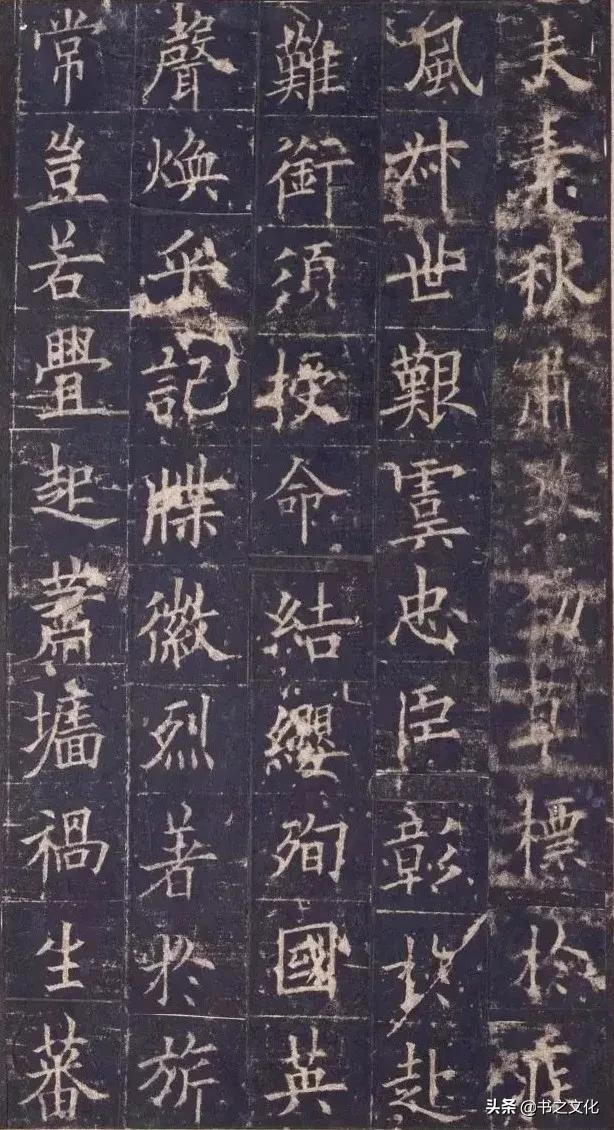 夫素秋肅草標於疾
風叔世艱虞忠臣彰於赴
難銜須授命結纓殉國英
聲煥乎記牒徽烈著於旂
常豈若舋起蕭墻禍生蕃
头条 @书之文化